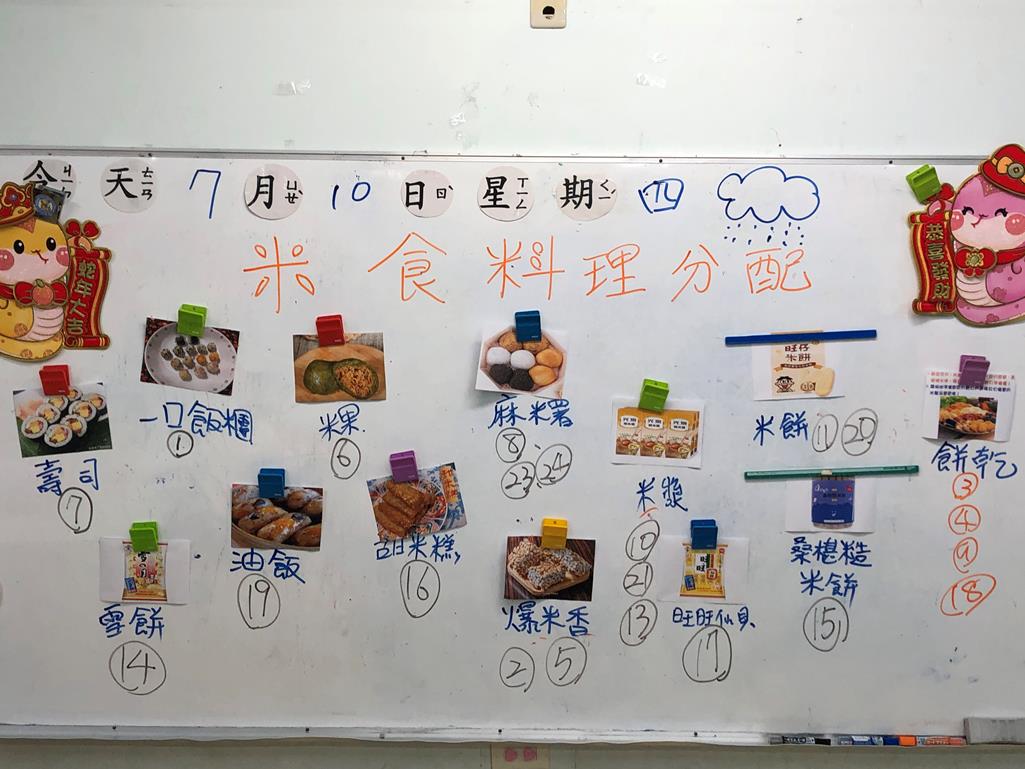 今ㄐㄧㄣ 天ㄊㄧㄢ 7 月ㄩㄝ 10 日ㄖ 星ㄒㄧㄥ 期ㄑㄧ 四
米食料理分配
蛇年大吉
恭喜發財
壽司
⑦
一口飯糰
①
粿
⑥
麻米署
⑧
㉓ ㉔
米餅 ⑪ ⑳
旺仔
米餅
餅乾
③
④
⑨
⑱
雪餅
⑭
油飯
⑲
甜米糕
⑯
爆米香
② ⑤
米漿
⑩
㉑
⑬
旺旺仙貝
⑰
桑椹糙
米餅
⑮